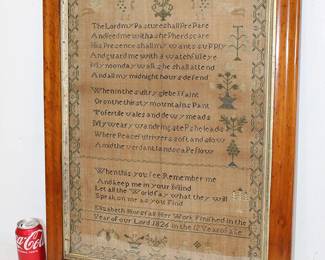 The Lord my Pasture shall PrePare
And feed me with a shePherds care
His Presence shall my wants suPPly
And guard me with a watchful eye
My noonday walks he shall attend
And all my midnight hours defend
When in the sultry glebe I faint
Or on the thirsty mountains Pant
To fertile vales and dewy meads
My weary wandring stePs he leads
Where Peaceful rivers soft and slow
Amid the verdant landscaPe flow
When this you see Remember me
And keep me in your Mind
Let all the World say what they will
Speak on me as you Find
Elizabeth Her Work Finished in the
Year of our Lord 1826 in the Year of age
Coca-Cola